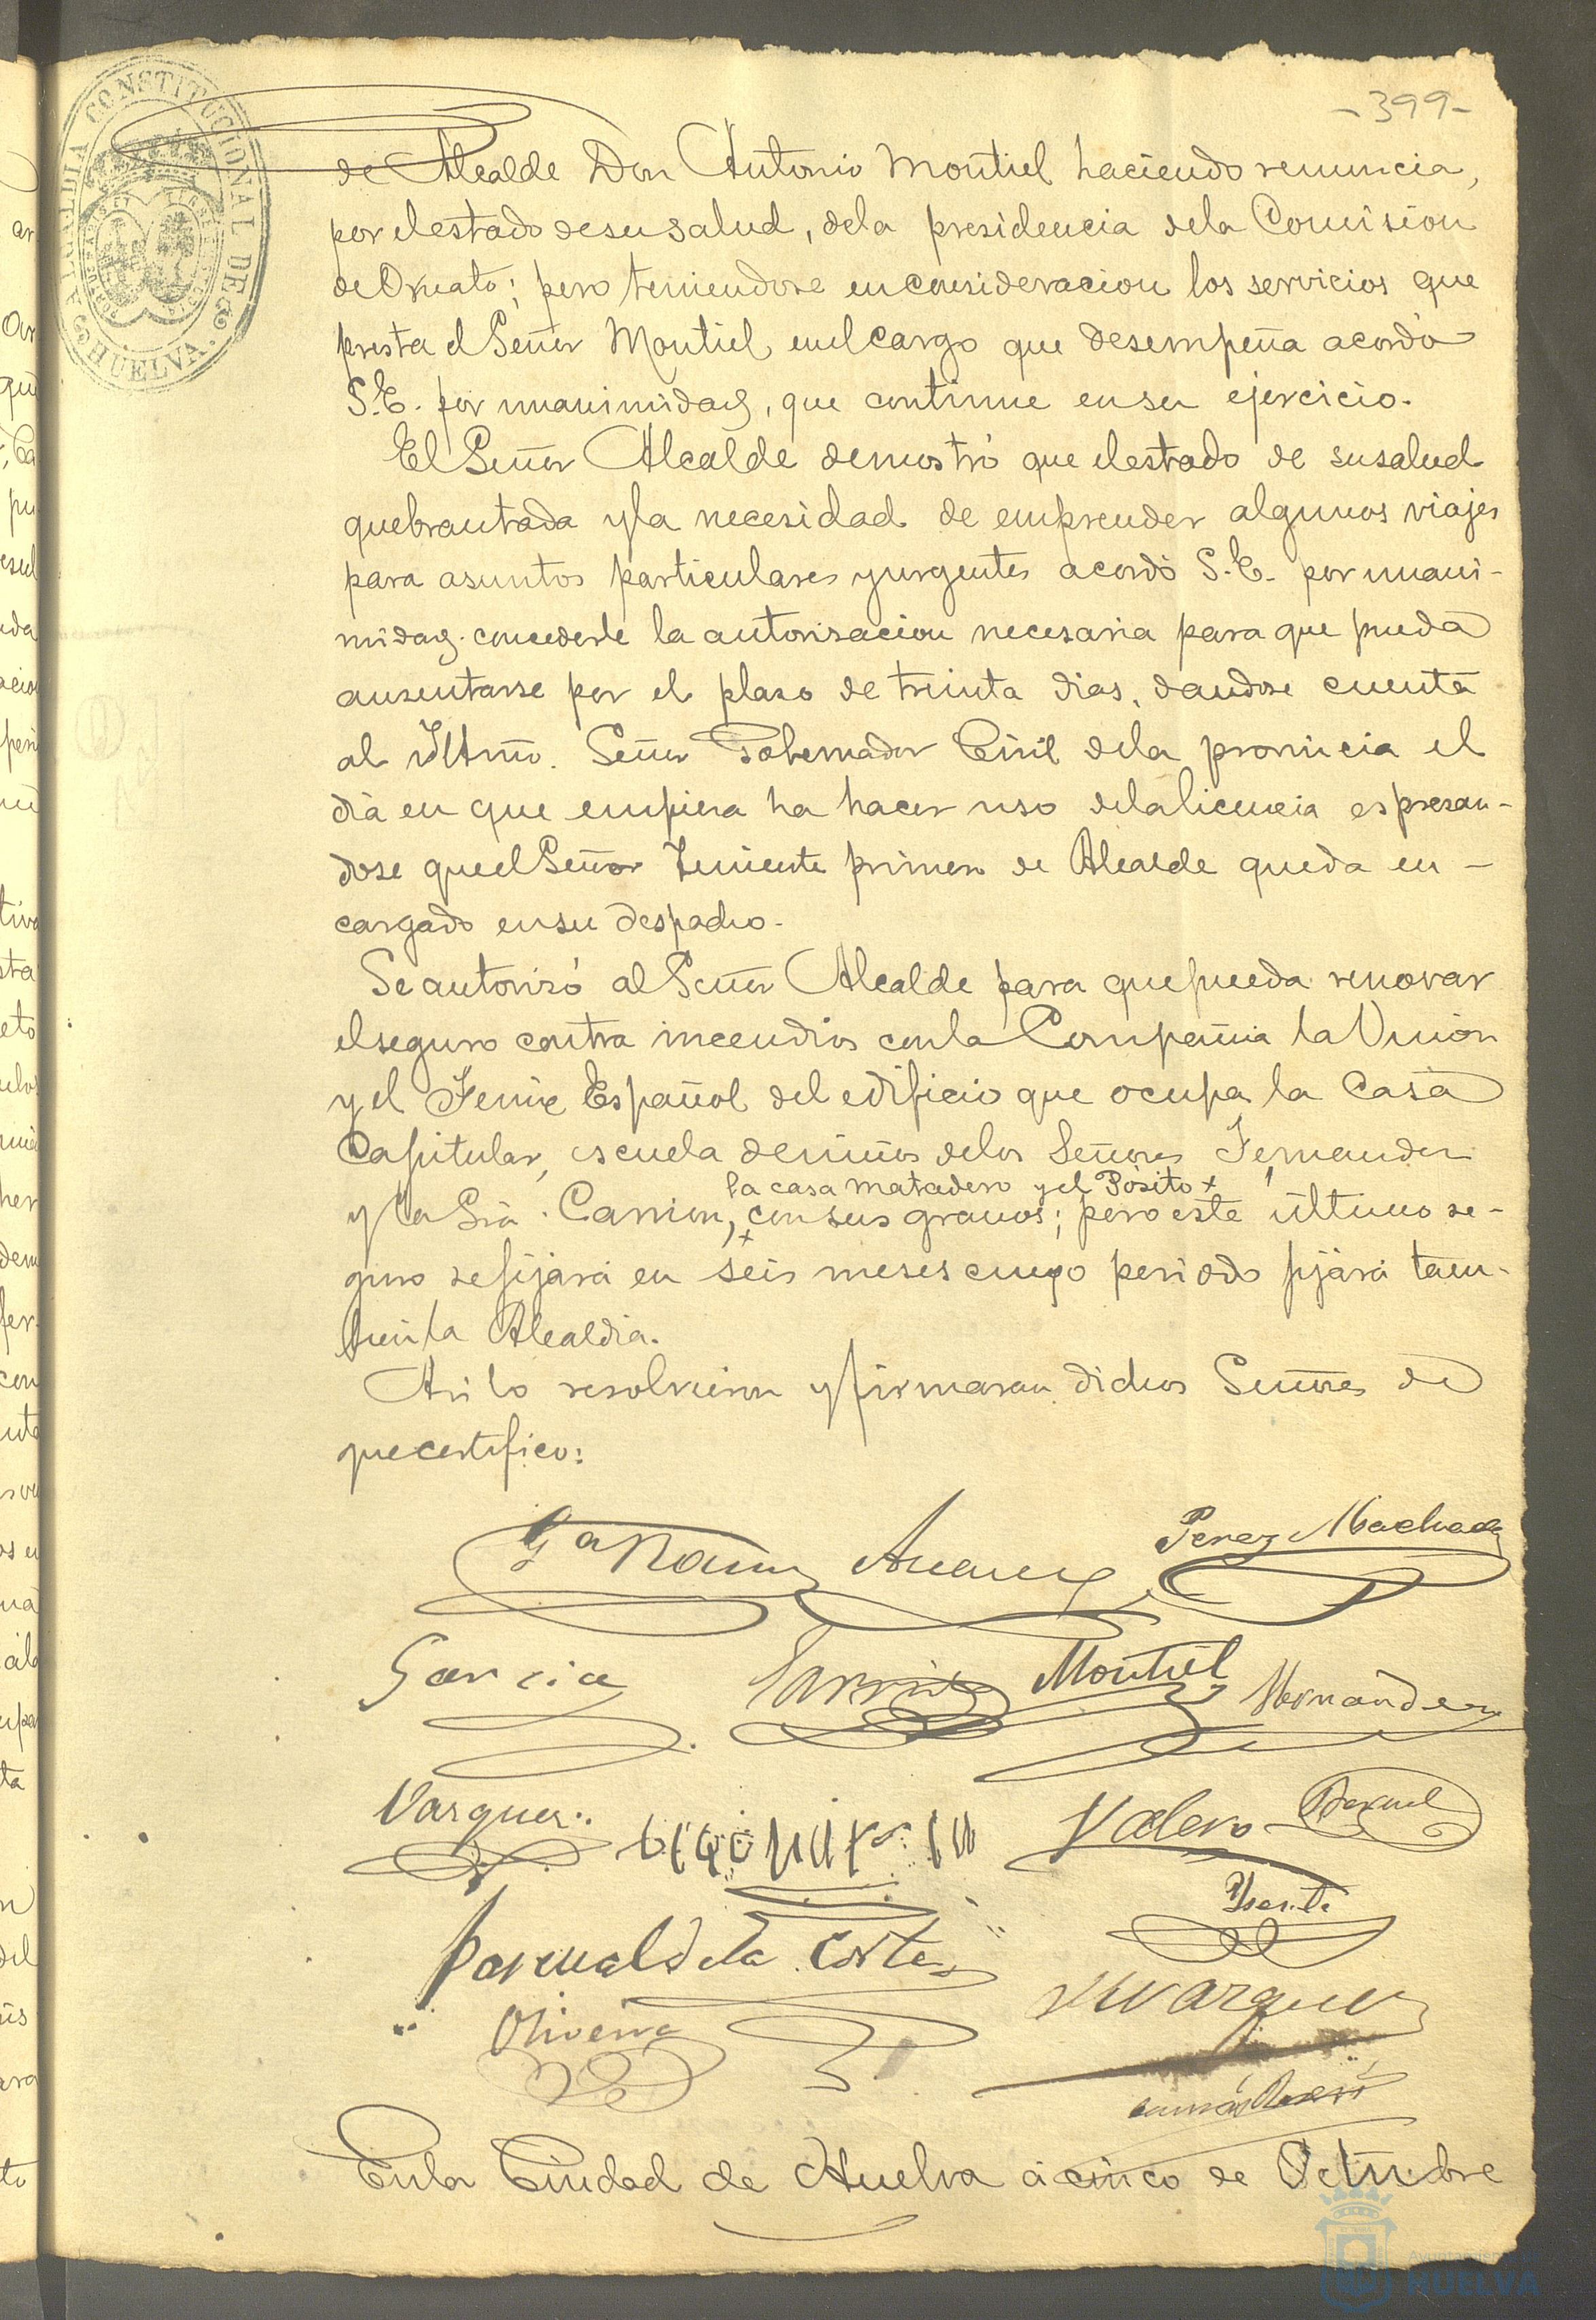 -399-
ALCALDIA CONSTITUCIONAL DE HUELVA.
de Alcalde Don Antonio Montiel haciendo renuncia,
por el estado de su salud, de la presidencia de la Comision
de Ornato; pero teniendose en consideracion los servicios que
presta el Señor Montiel en el cargo que desempeña acordó
S.E. por unanimidad, que continue en su ejercicio.
El Señor Alcalde demostró que el estado de su salud
quebrantada y la necesidad de emprender algunos viajes
para asuntos particulares y urgentes acordó S.E. por unani-
midad concederle la autorisacion necesaria para que pueda
ausentarse por el plaso de treinta dias, dandose cuenta
al Iltmo. Señor Gobernador Civil de la provincia el
dia en que empiera ha hacer uso de la licencia espresan-
dose que el Señor Teniente primero de Alcalde queda en-
cargado en su despacho.
Se autorizó al Señor Alcalde para que pueda renovar
el seguro contra incendios con la Compañia la Union
y el Fenix Español del edificio que ocupa la Casa
Capitular, escuela de niños de los Señores Fernandez
la casa matadero y el Pósito +
y la Sra. Carrion, con sus granos; pero este último se-
guro se fijará en seis meses cuyo periodo fijará tam-
bien la Alcaldia.
Asi lo resolvieron y firmaran dichos Señores de
que certifico:
Perez Machado
Garcia
Montiel Hernandez
Vazquez
Valero
de la Corte
Oliveira
Vazquez
En la Ciudad de Huelva á cinco de Octubre
HUELVA